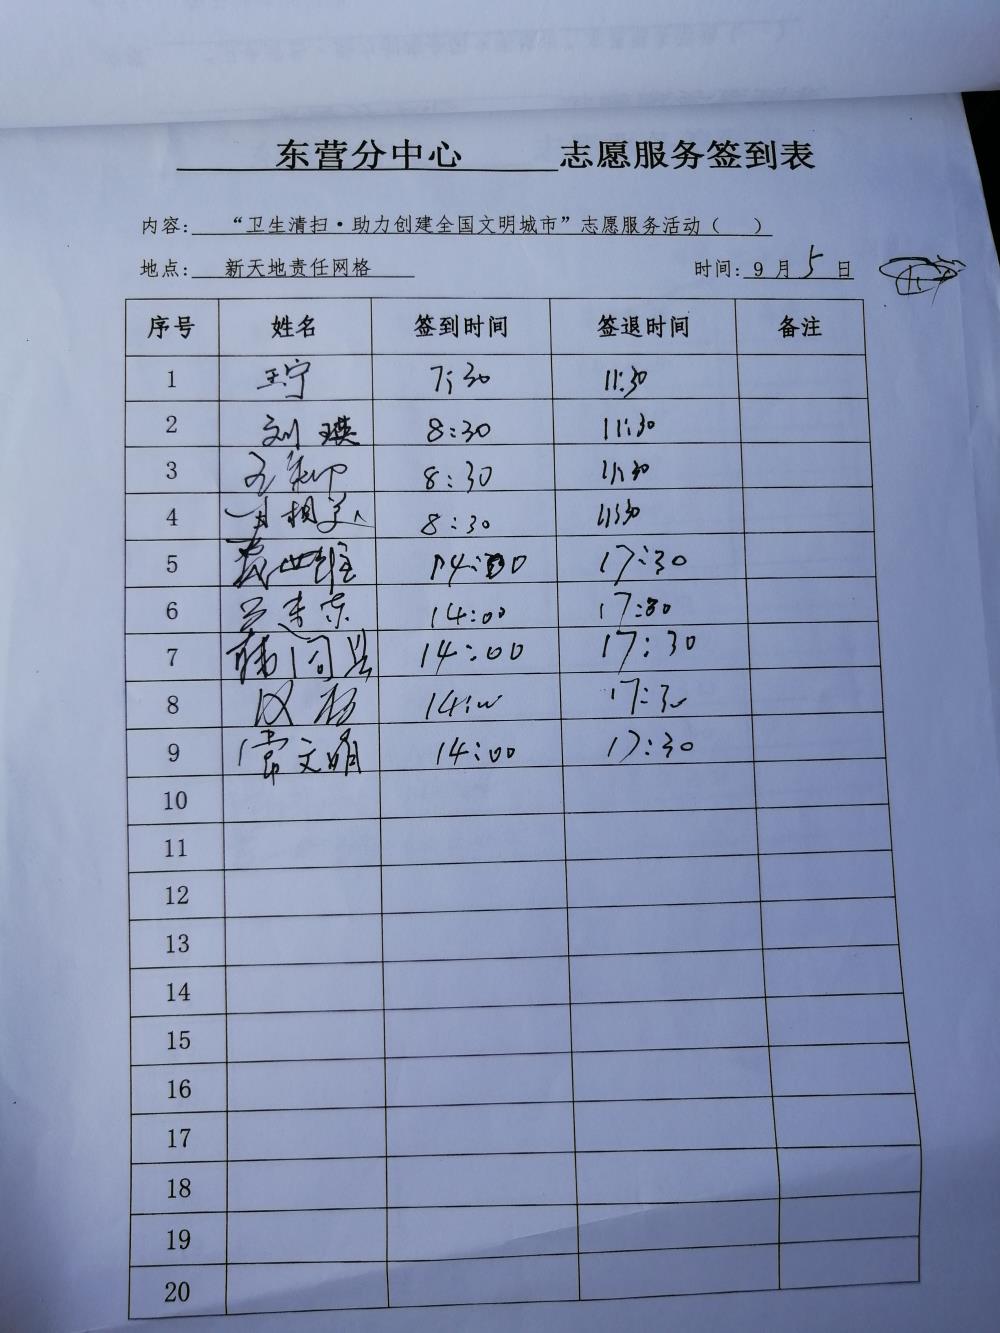 东营分中心 志愿服务签到表
内容: “卫生清扫·助力创建全国文明城市”志愿服务活动( )
地点: 新天地责任网格 时间: 9 月 5 日
序号 姓名 签到时间 签退时间 备注
1 王宁 7:30 11:30
2 刘瑛 8:30 11:30
3 8:30 11:30
4 8:30 11:30
5 14:00 17:30
6 14:00 17:30
7 14:00 17:30
8 14:00 17:30
9 常文娟 14:00 17:30
10
11
12
13
14
15
16
17
18
19
20